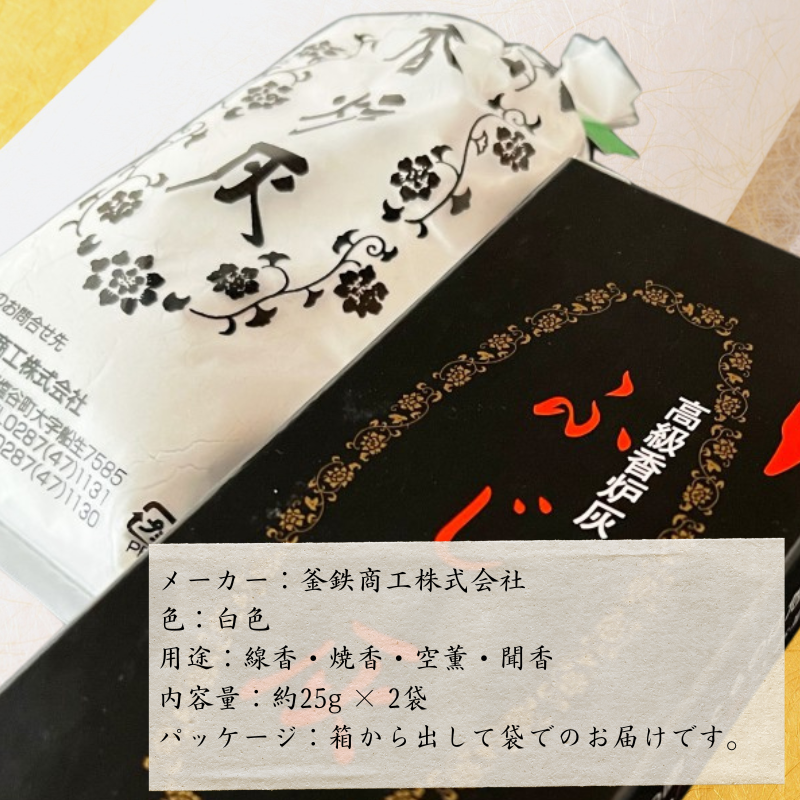 香炉
灰
のお問合せ先
商工株式会社
塩谷町大字船生7585
0287(47)1131
0287(47)1130
高級香炉灰
ふじ
メーカー：釜鉄商工株式会社
色：白色
用途：線香・焼香・空薫・聞香
内容量：約25g × 2袋
パッケージ：箱から出して袋でのお届けです。